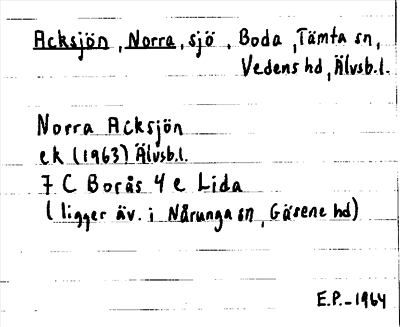 Acksjön, Norra, sjö, Boda, Tämta sn,
Vedens hd, Älvsb.l.
Norra Acksjön
ek (1963) Älvsb.l.
7 C Borås 4 e Lida
(ligger äv. i Nårunga sn, Gäsene hd)
E.P. - 1964